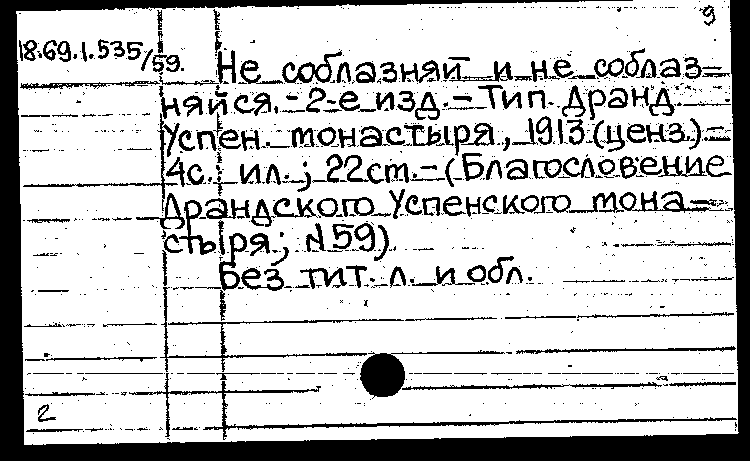 9
18.69.1.535/59.
Не соблазняй и не соблаз=
няйся. - 2-е изд. - Тип. Дранд.
Успен. монастыря, 1913 (ценз.) -
4с.: ил.; 22см. - (Благословение
Драндского Успенского мона=
стыря; №59)
Без тит. л. и обл.
2